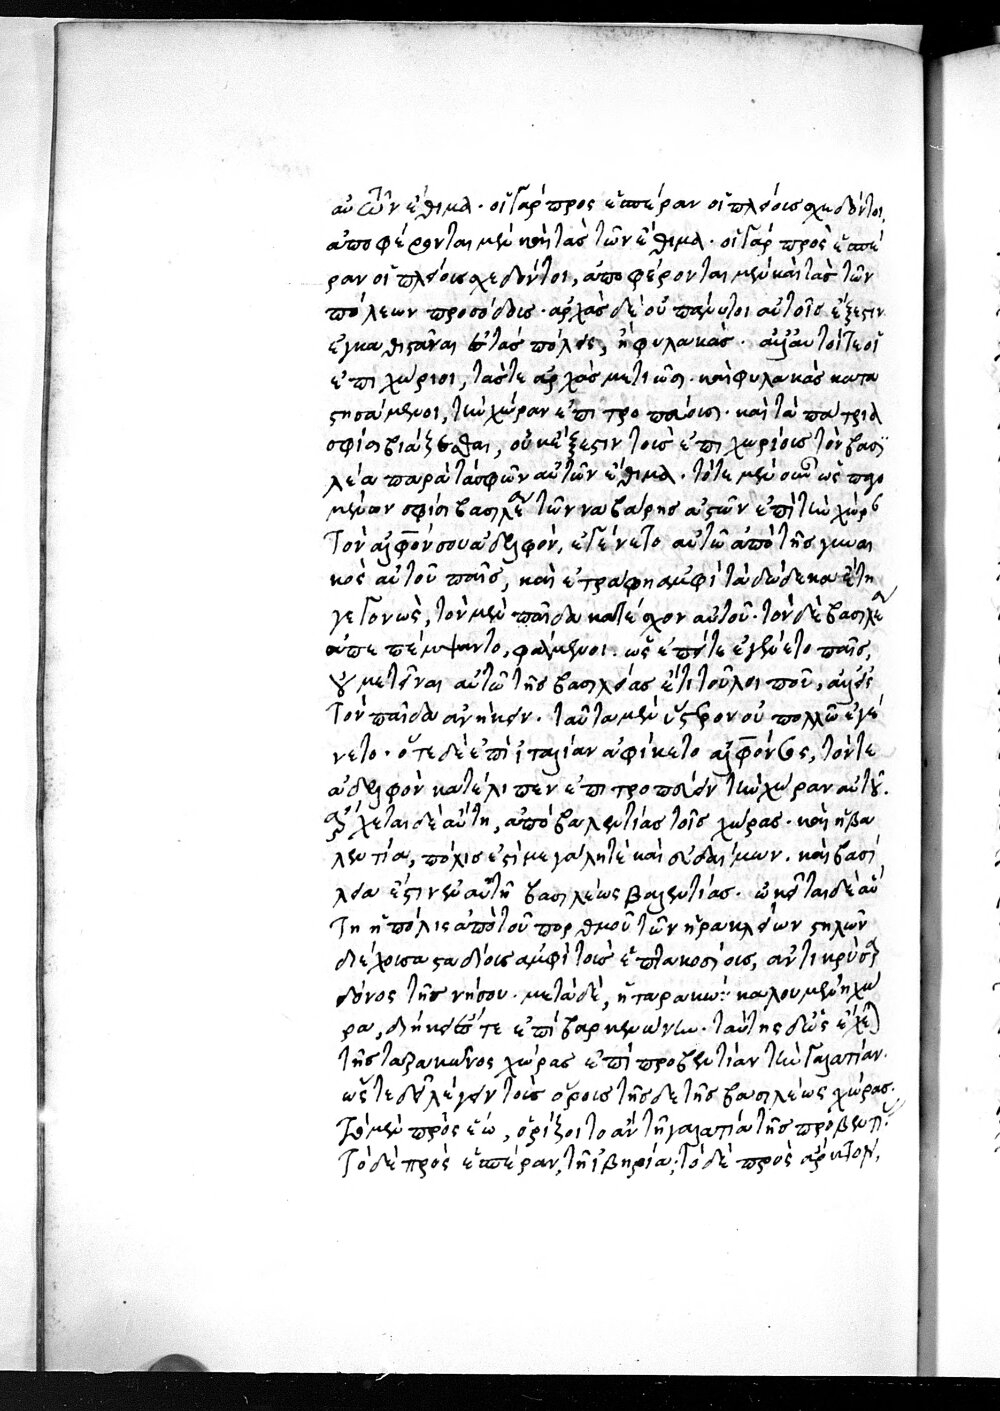 αὐτῶν ἔθιμα. οἱ γὰρ πρὸς ἑσπέραν οἱ πλείους σχεδόν τοι,
ἀποφέρονται μὲν καὶ τὰς τῶν ἔθιμα. οἱ γὰρ πρὸς ἑσπέ
ραν οἱ πλείους σχεδόν τοι, ἀποφέρονται μὲν καὶ τὰς τῶν
πόλεων προσόδους. ἀρχὰς δὲ οὐ πάνυ τοι αὐτοῖς ἔξεστιν
ἐγκαθιστάναι ἐς τὰς πόλεις, ἢ φυλακάς. ἀλλ' αὐτοί τε οἱ
ἐπιχώριοι, τάς τε ἀρχὰς μετιῶσι. καὶ φυλακὰς κατα
στησάμενοι, τὴν χώραν ἐπιτροπεύουσι. καὶ τὰ πάτρια
σφίσι βιάζεσθαι, οὐκ ἔξεστιν τοῖς ἐπιχωρίοις τὸν βασι
λέα παρὰ τὰ σφῶν αὐτῶν ἔθιμα. τότε μὲν οὖν ὡς
μένων σφίσι βασιλέα τῶν ναβάρης ἀστῶν ἐπὶ τὴν χώραν
τὸν ἀλφόνσου ἀδελφόν, ἐγένετο αὐτῶ ἀπὸ τῆς γυναι
κὸς αὐτοῦ παῖς, καὶ ἐτράφη ἀμφὶ τὰ δώδεκα ἔτη
γεγονώς, τὸν μὲν παῖδα κατέσχον αὐτοῦ. τὸν δὲ βασιλέα
ἀπεπέμψαντο, φάμενοι. ὡς ἐπείτε ἐγένετο παῖς,
οὐ μετεῖναι αὐτῶ τῆς βασιλείας ἔτι τοῦ λοιποῦ, ἀλλ' ἐς
τὸν παῖδα ἀνήκειν. ταῦτα μὲν ὕστερον οὐ πολλῶ ἐγέ
νετο. ὅτε δὲ ἐπὶ ἰταλίαν ἀφίκετο ἀλφόνσος, τόν τε
ἀδελφὸν κατέλιπεν ἐπιτροπεύειν τὴν χώραν αὐτοῦ.
ἄρχεται δὲ αὕτη, ἀπὸ βαλεντίας τοῖς χώρας. καὶ ἡ βα
λεντία, πόλις ἐστὶ μεγάλη τὲ καὶ εὐδαίμων. καὶ βασί
λεια ἔστιν ἐν αὐτῆ βασιλέως βαλεντίας. ὠκεῖται δὲ αὕ
τη ἡ πόλις ἀπὸ τοῦ πορθμοῦ τῶν ἡρακλείων στηλῶν
διέχουσα σταδίοις ἀμφὶ τοῖς ἑπτακοσίοις, ἀντικρὺ σαρ
δόνος τῆς νήσου. μετὰ δὲ, ἡ ταρακὼν καλουμένη χώ
ρα, διήκει ἔστε ἐπὶ βαρκενώνην. ταύτης δὲ ὡς ἔχεται
τῆς ταρακῶνος χώρας ἐπὶ προβεντίαν τὴν γαλατίαν.
ὥς τε δὲ λέγειν τοῖς ὅροις τῆσδε τῆς βασιλέως χώρας.
τὸ μὲν πρὸς ἕω, ὁρίζοιτο ἂν τῆ γαλατία τῆς προβεντίας
τὸ δὲ πρὸς ἑσπέραν, τῆ ἰβηρία, τὸ δὲ πρὸς ἄρκτον,